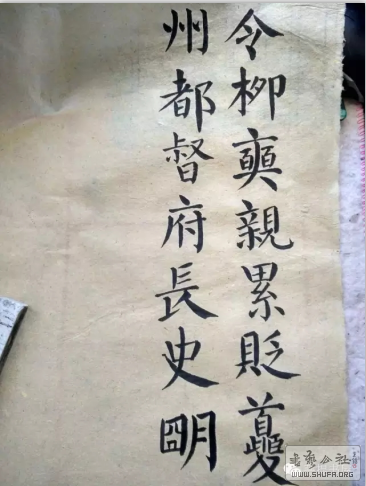 令柳奭親累貶夔
州都督府長史朙
書藝公社
WWW.SHUFA.ORG